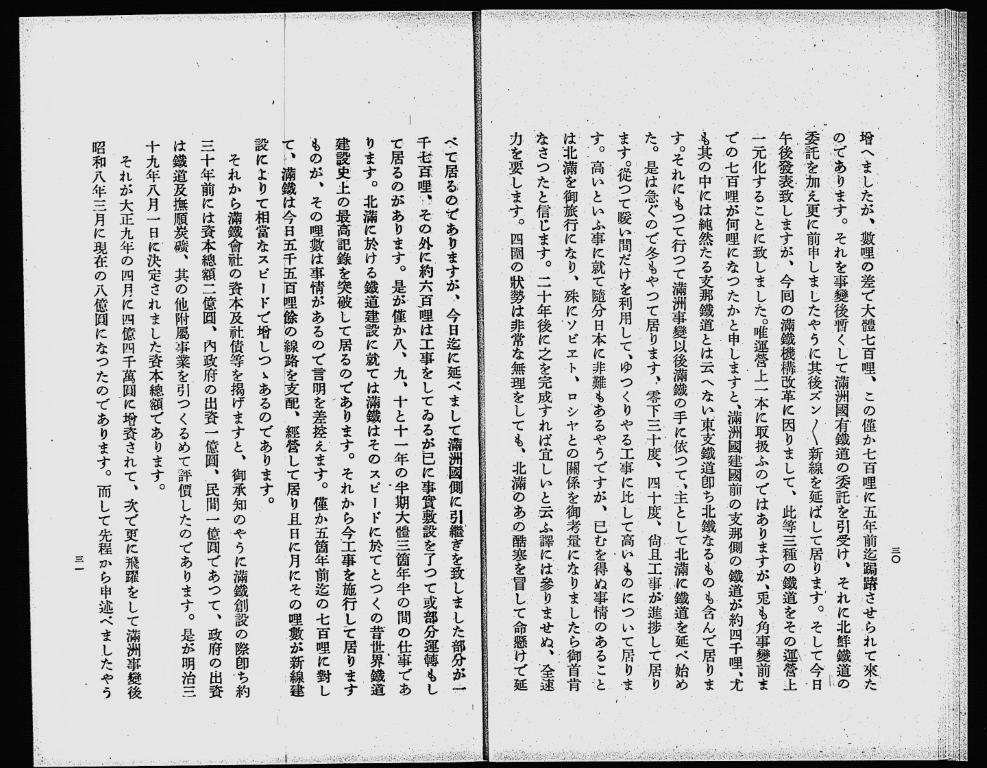 三〇
增へましたが、數哩の差で大體七百哩、この僅か七百哩に五年前迄跼蹐させられて來た
のであります。それを事變後暫くして滿洲國有鐵道の委託を引受け、それに北鮮鐵道の
委託を加え更に前申しましたやうに其後ズン〱新線を延ばして居ります。そして今日
午後發表致しますが、今囘の滿鐵機構改革に因りまして、此等三種の鐵道をその運營上
一元化することに致しました。唯運營上一本に取扱ふのではありますが、兎も角事變前ま
での七百哩が何哩になつたかと申しますと、滿洲國建國前の支那側の鐵道が約四千哩、尤
も其の中には純然たる支那鐵道とは云へない東支鐵道卽ち北鐵なるものも含んで居りま
す。それにもつて行つて滿洲事變以後滿鐵の手に依つて、主として北滿に鐵道を延べ始め
た。是は急ぐので冬もやつて居ります、零下三十度、四十度、尙且工事が進捗して居り
ます。從つて暖い間だけを利用して、ゆつくりやる工事に比して高いものについて居りま
す。高いといふ事に就て隨分日本に非難もあるやうですが、已むを得ぬ事情のあること
は北滿を御旅行になり、殊にソビエト、ロシヤとの關係を御考量になりましたら御首肯
なさつたと信じます。二十年後に之を完成すれば宜しいと云ふ譯には參りませぬ、全速
力を要します。四圍の狀勢は非常な無理をしても、北滿のあの酷寒を冒して命懸けで延
べて居るのでありますが、今日迄に延べまして滿洲國側に引繼ぎを致しました部分が一
千七百哩、その外に約六百哩は工事をしてゐるが已に事實敷設を了つて或部分運轉もし
て居るのがあります。是が僅か八、九、十と十一年の半期大體三箇年半の間の仕事であ
ります。北滿に於ける鐵道建設に就ては滿鐵はそのスピードに於てとつくの昔世界鐵道
建設史上の最高記錄を突破して居るのであります。それから今工事を施行して居ります
ものが、その哩數は事情があるので言明を差控えます。僅か五箇年前迄の七百哩に對し
て、滿鐵は今日五千五百哩餘の線路を支配、經營して居り且日に月にその哩數が新線建
設によりて相當なスピードで增しつゝあるのであります。
それから滿鐵會社の資本及社債等を揭げますと、御承知のやうに滿鐵創設の際卽ち約
三十年前には資本總額二億圓、內政府の出資一億圓、民間一億圓であつて、政府の出資
は鐵道及撫順炭礦、其の他附屬事業を引つくるめて評價したのであります。是が明治三
十九年八月一日に決定されました資本總額であります。
それが大正九年の四月に四億四千萬圓に增資されて、次で更に飛躍をして滿洲事變後
昭和八年三月に現在の八億圓になつたのであります。而して先程から申述べましたやう
三一